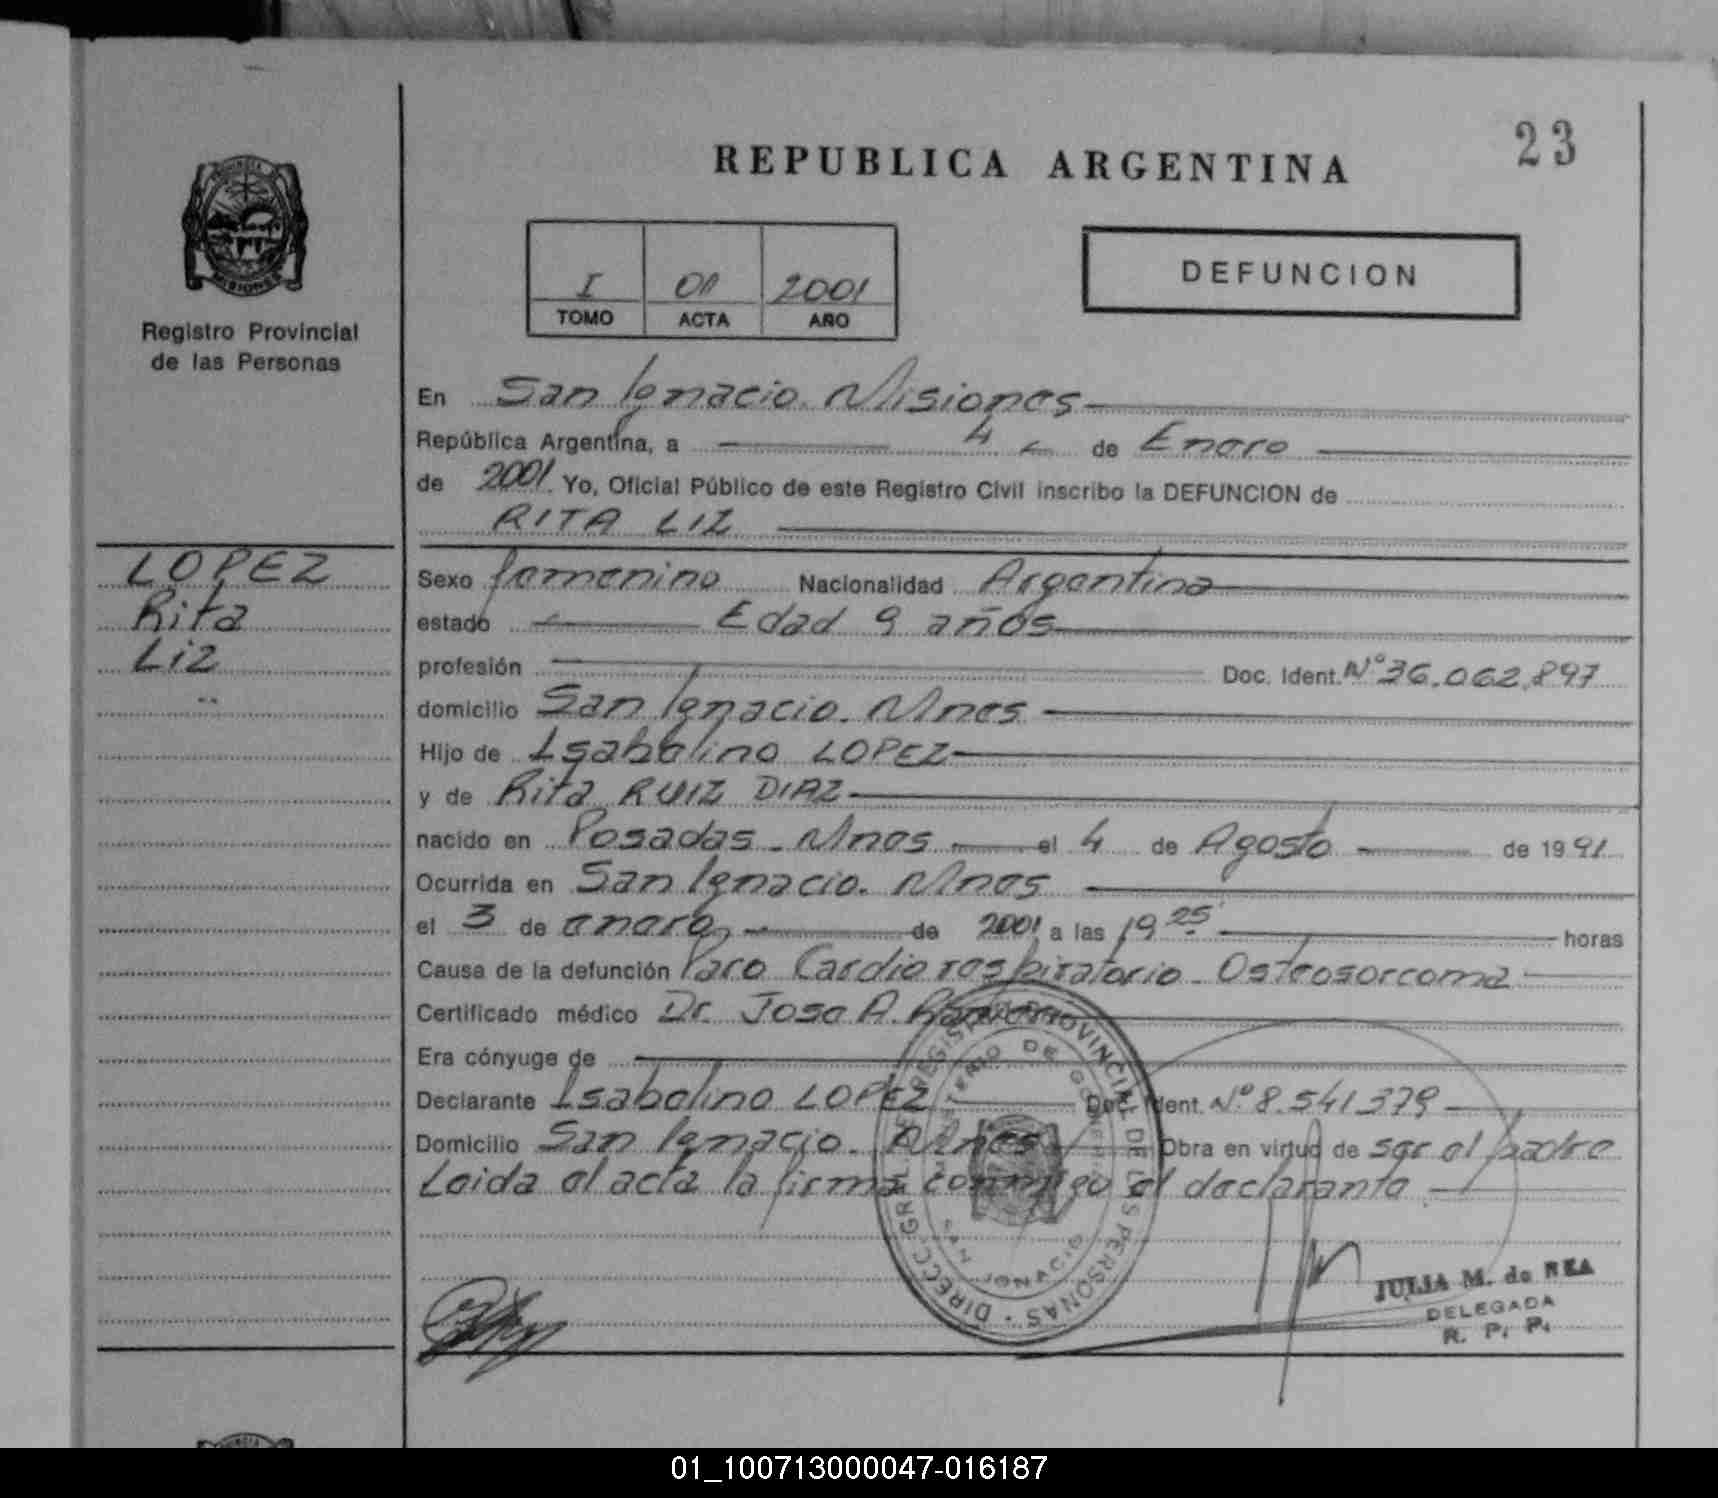 23
REPUBLICA ARGENTINA
PROVINCIA
MISIONES
Registro Provincial
de las Personas
I 01 2001
TOMO ACTA AÑO
DEFUNCION
En San Ignacio. Misiones
República Argentina, a 4 de Enero
de 2001 Yo, Oficial Público de este Registro Civil inscribo la DEFUNCION de
RITA LIZ
LOPEZ
Rita
Liz
Sexo femenino Nacionalidad Argentina
estado Edad 9 años
profesión Doc. Ident. Nº 36.062.897
domicilio San Ignacio. Mnes
Hijo de Isabelino LOPEZ
y de Rita RUIZ DIAZ
nacido en Posadas - Mnes el 4 de Agosto de 1991
Ocurrida en San Ignacio. Mnes
el 3 de enero de 2001 a las 19 25 horas
Causa de la defunción Paro Cardio respiratorio - Osteosorcoma
Certificado médico Dr. Jose A.
Era cónyuge de
Declarante Isabelino LOPEZ Doc. Ident. Nº 8.541.379
Domicilio San Ignacio. Mnes Obra en virtud de ser el padre
Leida el acta la firma conmigo el declarante
DIRECC. GRAL. DE REGISTRO PROVINCIAL DE LAS PERSONAS
MINISTERIO DE GOBIERNO
SAN IGNACIO
JULIA M. de REA
DELEGADA
R. P. P.
01_100713000047-016187